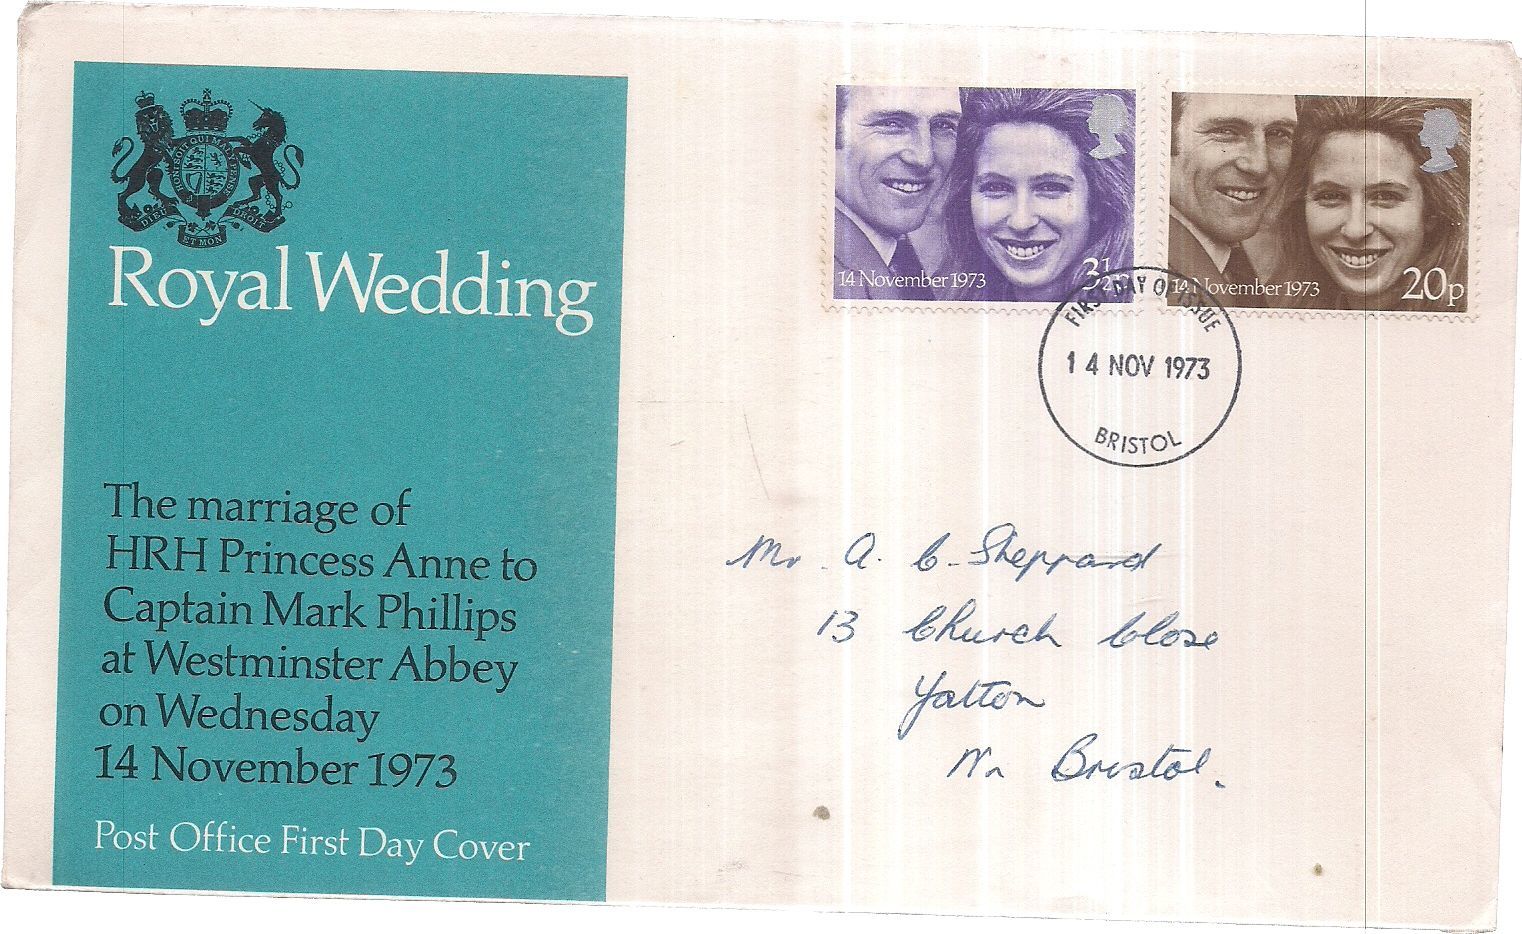 HONI SOIT QUI MAL Y PENSE
DIEU ET MON DROIT
Royal Wedding
The marriage of
HRH Princess Anne to
Captain Mark Phillips
at Westminster Abbey
on Wednesday
14 November 1973
Post Office First Day Cover
14 November 1973
3½p
14 November 1973
20p
FIRST DAY OF ISSUE
14 NOV 1973
BRISTOL
Mr. A. C. Sheppard
13 Church Close
Yatton
Nr Bristol.